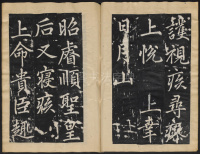 護視疾尋瘳
上悦　上幸
日月山
昭睿順聖皇
后又寝疾
上命貴臣趣